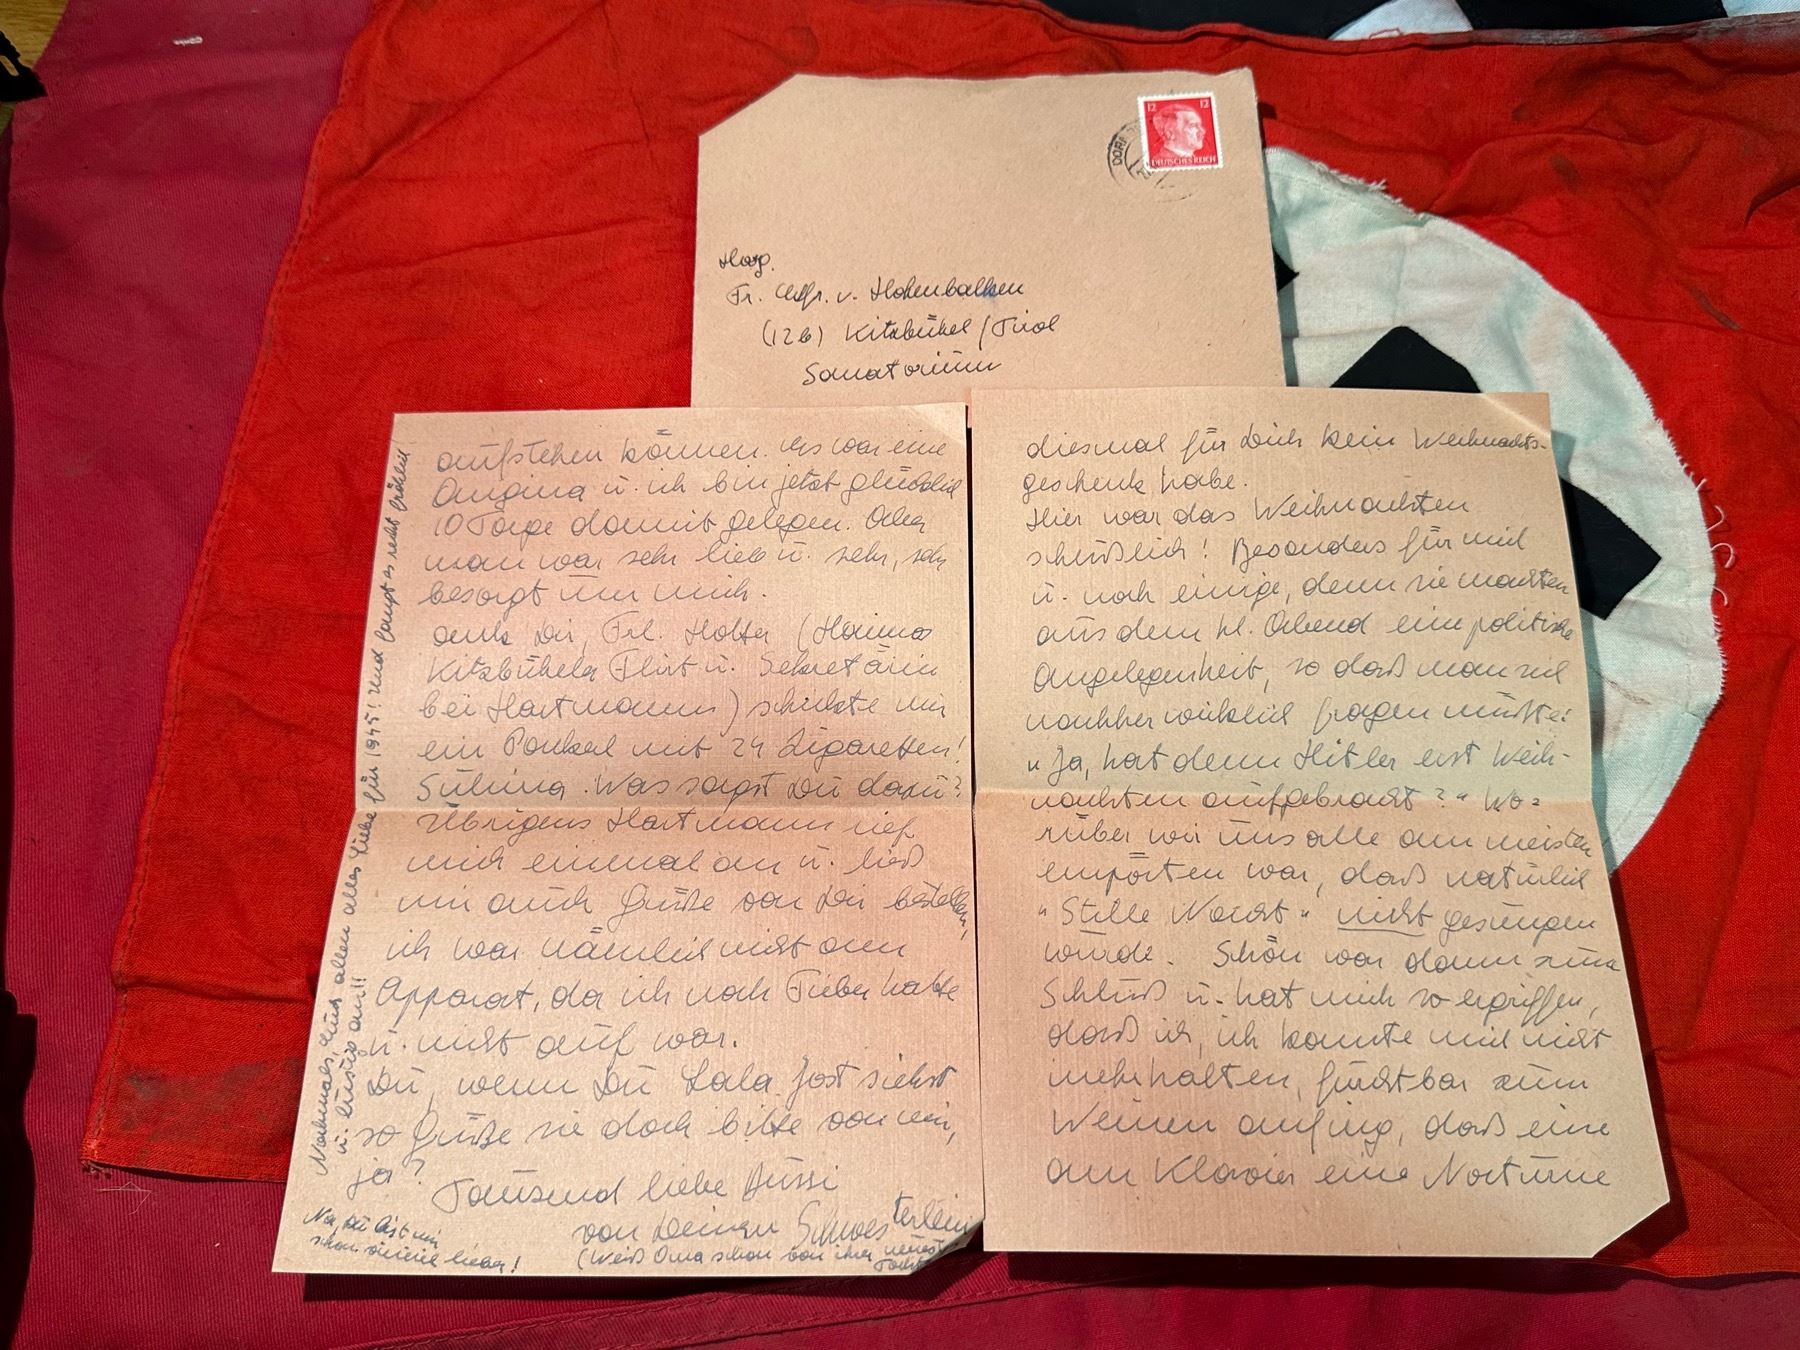 12 12
DEUTSCHES REICH
DORF
Fr. v. Hohenbalken
(12b) Kitzbühel / Tirol
Sanatorium
aufstehen können. Es war eine
Angina u. ich bin jetzt glücklich
10 Tage damit gelegen. Aber
man war sehr lieb u. sehr, sehr
besorgt um mich.
denk Dir, Frl. Holter (Hannas
Kitzbühela Flirt u. Sekretärin
bei Hartmann) schickte mir
ein Packerl mit 24 Zigaretten!
Was sagst Du dazu?
Übrigens Hartmann rief
mich einmal an u. ließ
mir auch Grüße von Dir bestellen,
ich war nämlich nicht am
Apparat, da ich noch Fieber hatte
u. nicht auf war.
Du, wenn Du Lala Jost siehst
so Grüße sie doch bitte von mir,
ja?
Tausend liebe Bussi
von Deinem Schwesterlein
(Weiß Oma schon von ihrer
Na, Du bist mir
schon lieber!
Nochmals, Euch allen alles Liebe für 1945! Und fangt es recht fröhlich
u. lustig an!!
diesmal für Dich kein Weihnachts-
geschenk habe.
Hier war das Weihnachten
scheußlich! Besonders für mich
u. noch einige, denn sie machten
aus dem hl. Abend eine politische
Angelegenheit, so daß man sich
nachher wirklich fragen mußte:
"Ja, hat denn Hitler erst Weih-
nachten aufgebracht?" Wo-
rüber wir uns alle am meisten
empörten war, daß natürlich
"Stille Nacht" nicht gesungen
wurde. Schön war dann zum
Schluß u. hat mich so ergriffen,
daß ich, ich konnte mich nicht
mehr halten, furchtbar zum
Weinen anfing, daß eine
am Klavier eine Nocturne